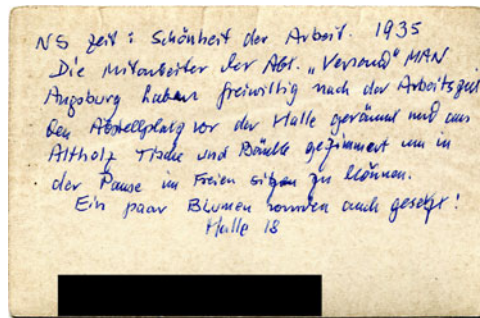 NS Zeit: Schönheit der Arbeit. 1935
Die Mitarbeiter der Abt. „Versand“ MAN
Augsburg haben freiwillig nach der Arbeitszeit
den Abstellplatz vor der Halle geräumt und aus
Altholz Tische und Bänke gezimmert um in
der Pause im Freien sitzen zu können.
Ein paar Blumen wurden auch gesetzt!
Halle 18